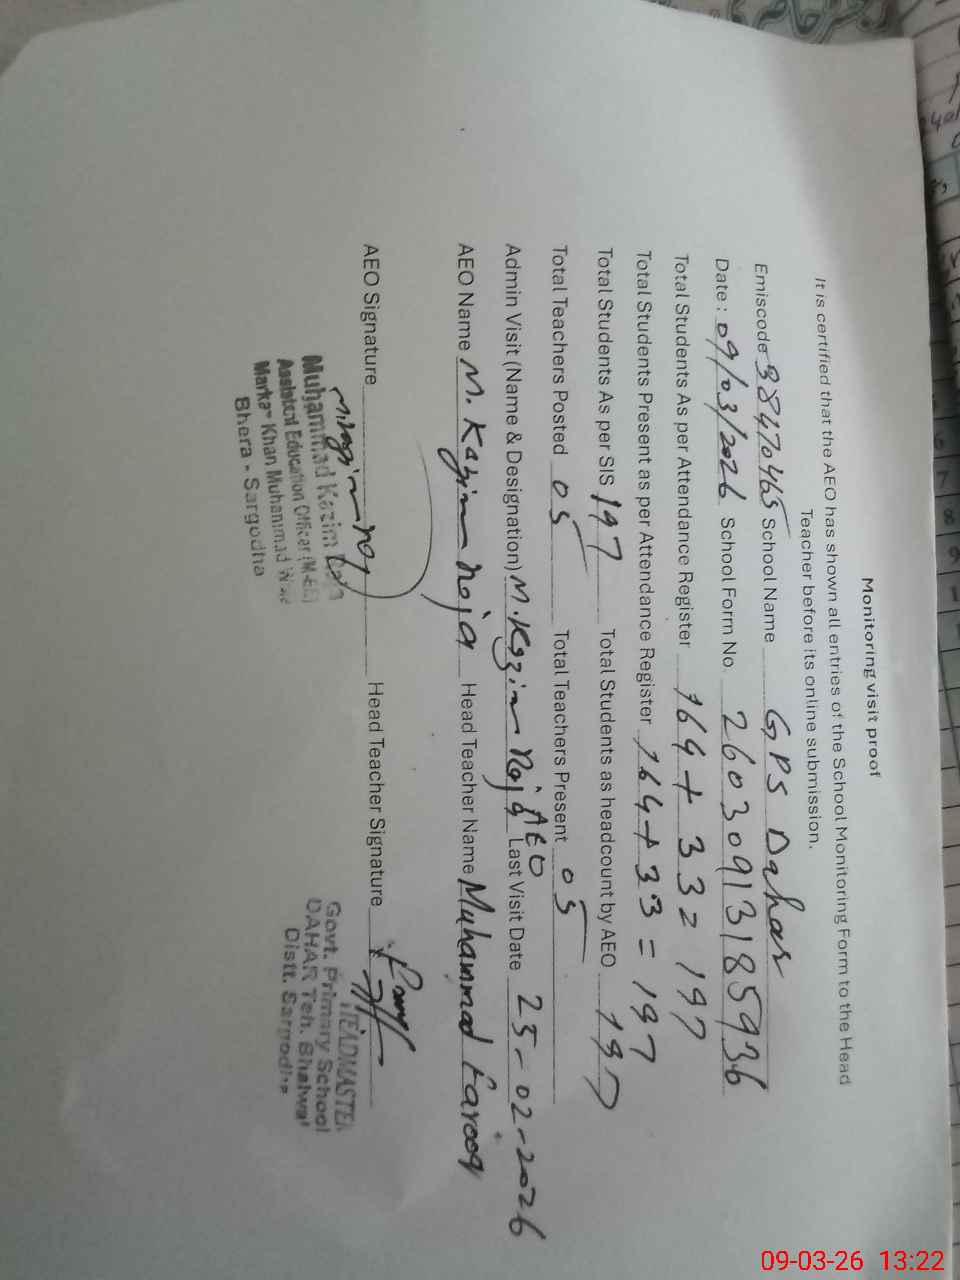 Monitoring visit proof
It is certified that the AEO has shown all entries of the School Monitoring Form to the Head
Teacher before its online submission.
Emiscode 38470465 School Name GPS Dahar
Date: 09/03/2026 School Form No. 2603091318 5936
Total Students As per Attendance Register 164 + 33 = 197
Total Students Present as per Attendance Register 164 + 33 = 197
Total Students As per SIS 197 Total Students as headcount by AEO 197
Total Teachers Posted 05 Total Teachers Present 05
Admin Visit (Name & Designation) M. Kazim Raja AEO Last Visit Date 25-02-2026
AEO Name M. Kazim Raja Head Teacher Name Muhammad Farooq
AEO Signature Head Teacher Signature
Muhammad Kazim Raja
Assistant Education Officer (M-EE)
Marka- Khan Muhammad
Bhera - Sargodha
HEADMASTER
Govt. Primary School
DAHAR Teh. Bhalwal
Distt. Sargodha
09-03-26 13:22